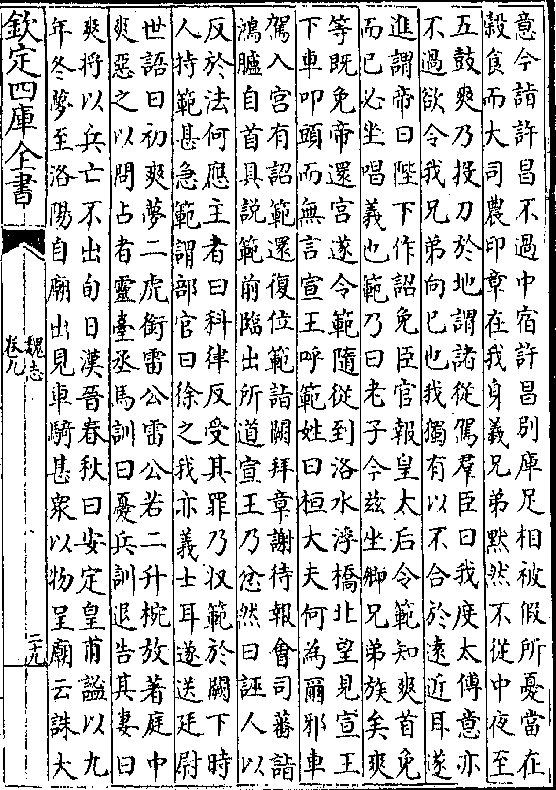 意今詣許昌不過中宿許昌别庫足相被假所憂當在
穀食而大司農印章在我身義兄弟默然不從中夜至
五鼓爽乃投刀於地謂諸從駕羣臣曰我度太傅意亦
不過欲令我兄弟向己也我獨有以不合於遠近耳遂
進謂帝曰陛下作詔免臣官報皇太后令範知爽首免
而已必坐唱義也範乃曰老子今兹坐卿兄弟族矣爽
等既免帝還宮遂令範隨從到洛水浮橋北望見宣王
下車叩頭而無言宣王呼範姓曰桓大夫何為爾邪車
駕入宮有詔範還復位範詣闕拜章謝待報會司蕃詣
鴻臚自首具説範前臨出所道宣王乃忿然曰誣人以
反於法何應主者曰科律反受其罪乃収範於闕下時
人持範甚急範謂部官曰徐之我亦義士耳遂送廷尉
世語曰初爽夢二虎銜雷公雷公若二升椀放著庭中
爽惡之以問占者靈臺丞馬訓曰憂兵訓退告其妻曰
爽将以兵亡不出旬日漢晉春秋曰安定皇甫謐以九
年冬夢至洛陽自廟出見車騎甚衆以物呈廟云誅大
欽定四庫全書
魏志
卷九
二十九